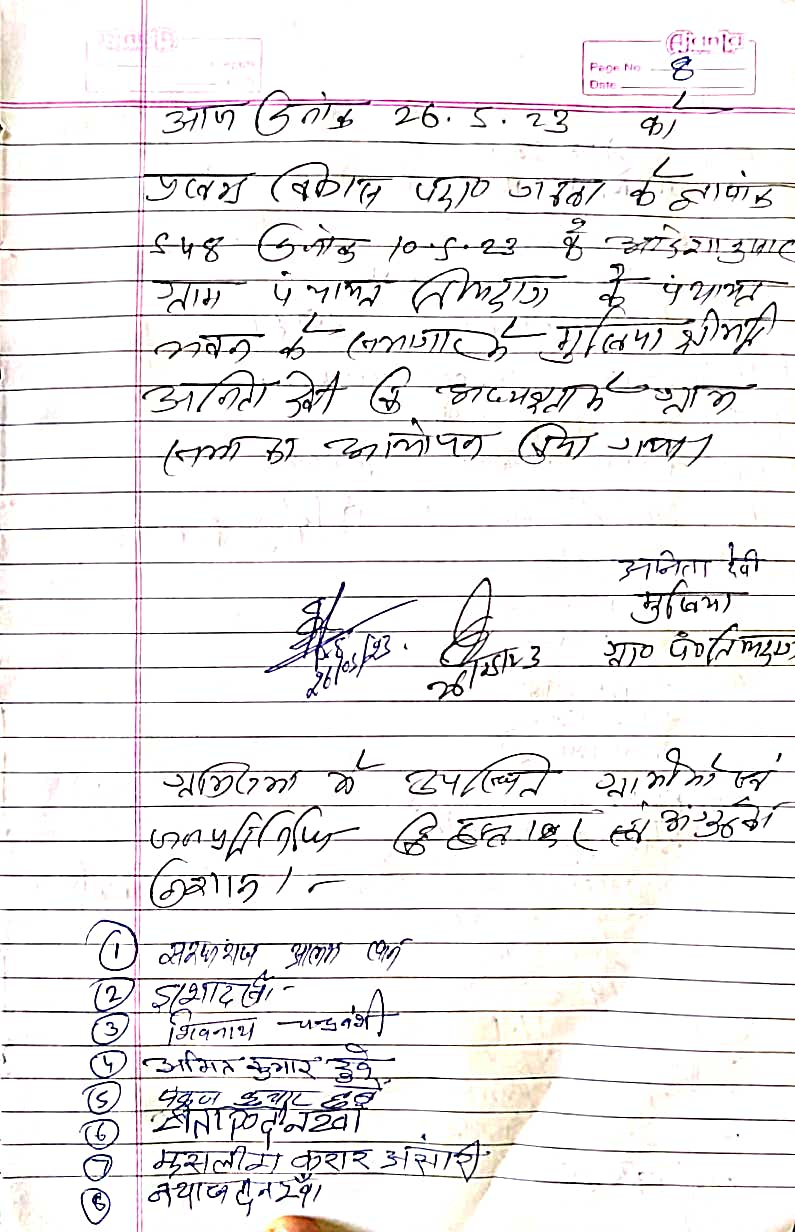 Ajanta
Page No 8
Date
आज दिनांक 26.5.23 को
प्रखण्ड विकास पदा० के ज्ञापांक
548 दिनांक 10.5.23 के आदेशानुसार
ग्राम पंचायत के पंचायत
भवन के सभागार में मुखिया श्रीमती
अनिता देवी कि अध्यक्षता में ग्राम
सभा का आयोजन किया गया।
अनिता देवी
मुखिया
ग्रा० पं०
26/05/23.
26/05/23
ग्रामसभा में उपस्थित ग्रामीणों एवं
जनप्रतिनिधि कि हस्ताक्षर एवं अंगुठे का
निशान।-
① सरफराज आलम खान
②
③ शिवनाथ चन्द्रवंशी
④ अमित कुमार दुबे
⑤ पंकज कुमार दुबे
⑥
⑦ अंसारी
⑧